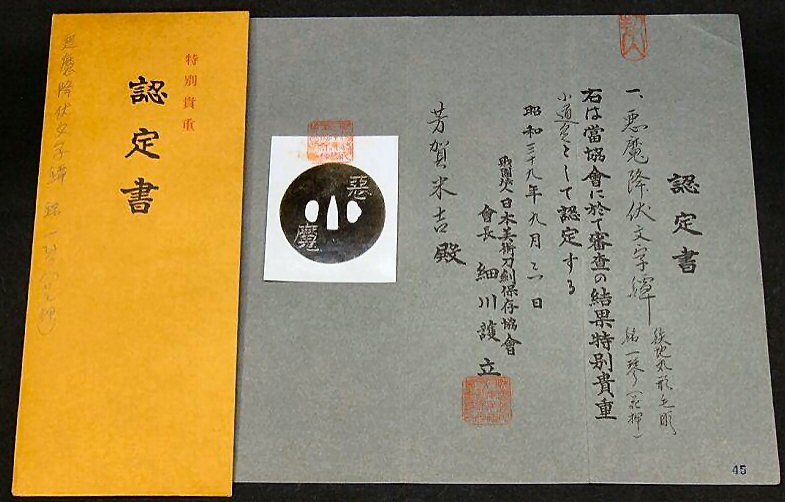 認定書
一、悪魔降伏文字鐔 鉄地丸形毛彫
銘一琴(花押)
右は當協會に於て審査の結果特別貴重
小道具として認定する
昭和三十九年九月一日
財團法人日本美術刀剣保存協會
會長 細川護立
芳賀米吉殿
惡
魔
45
特別貴重
認定書
悪魔降伏文字鐔 銘 一琴(花押)